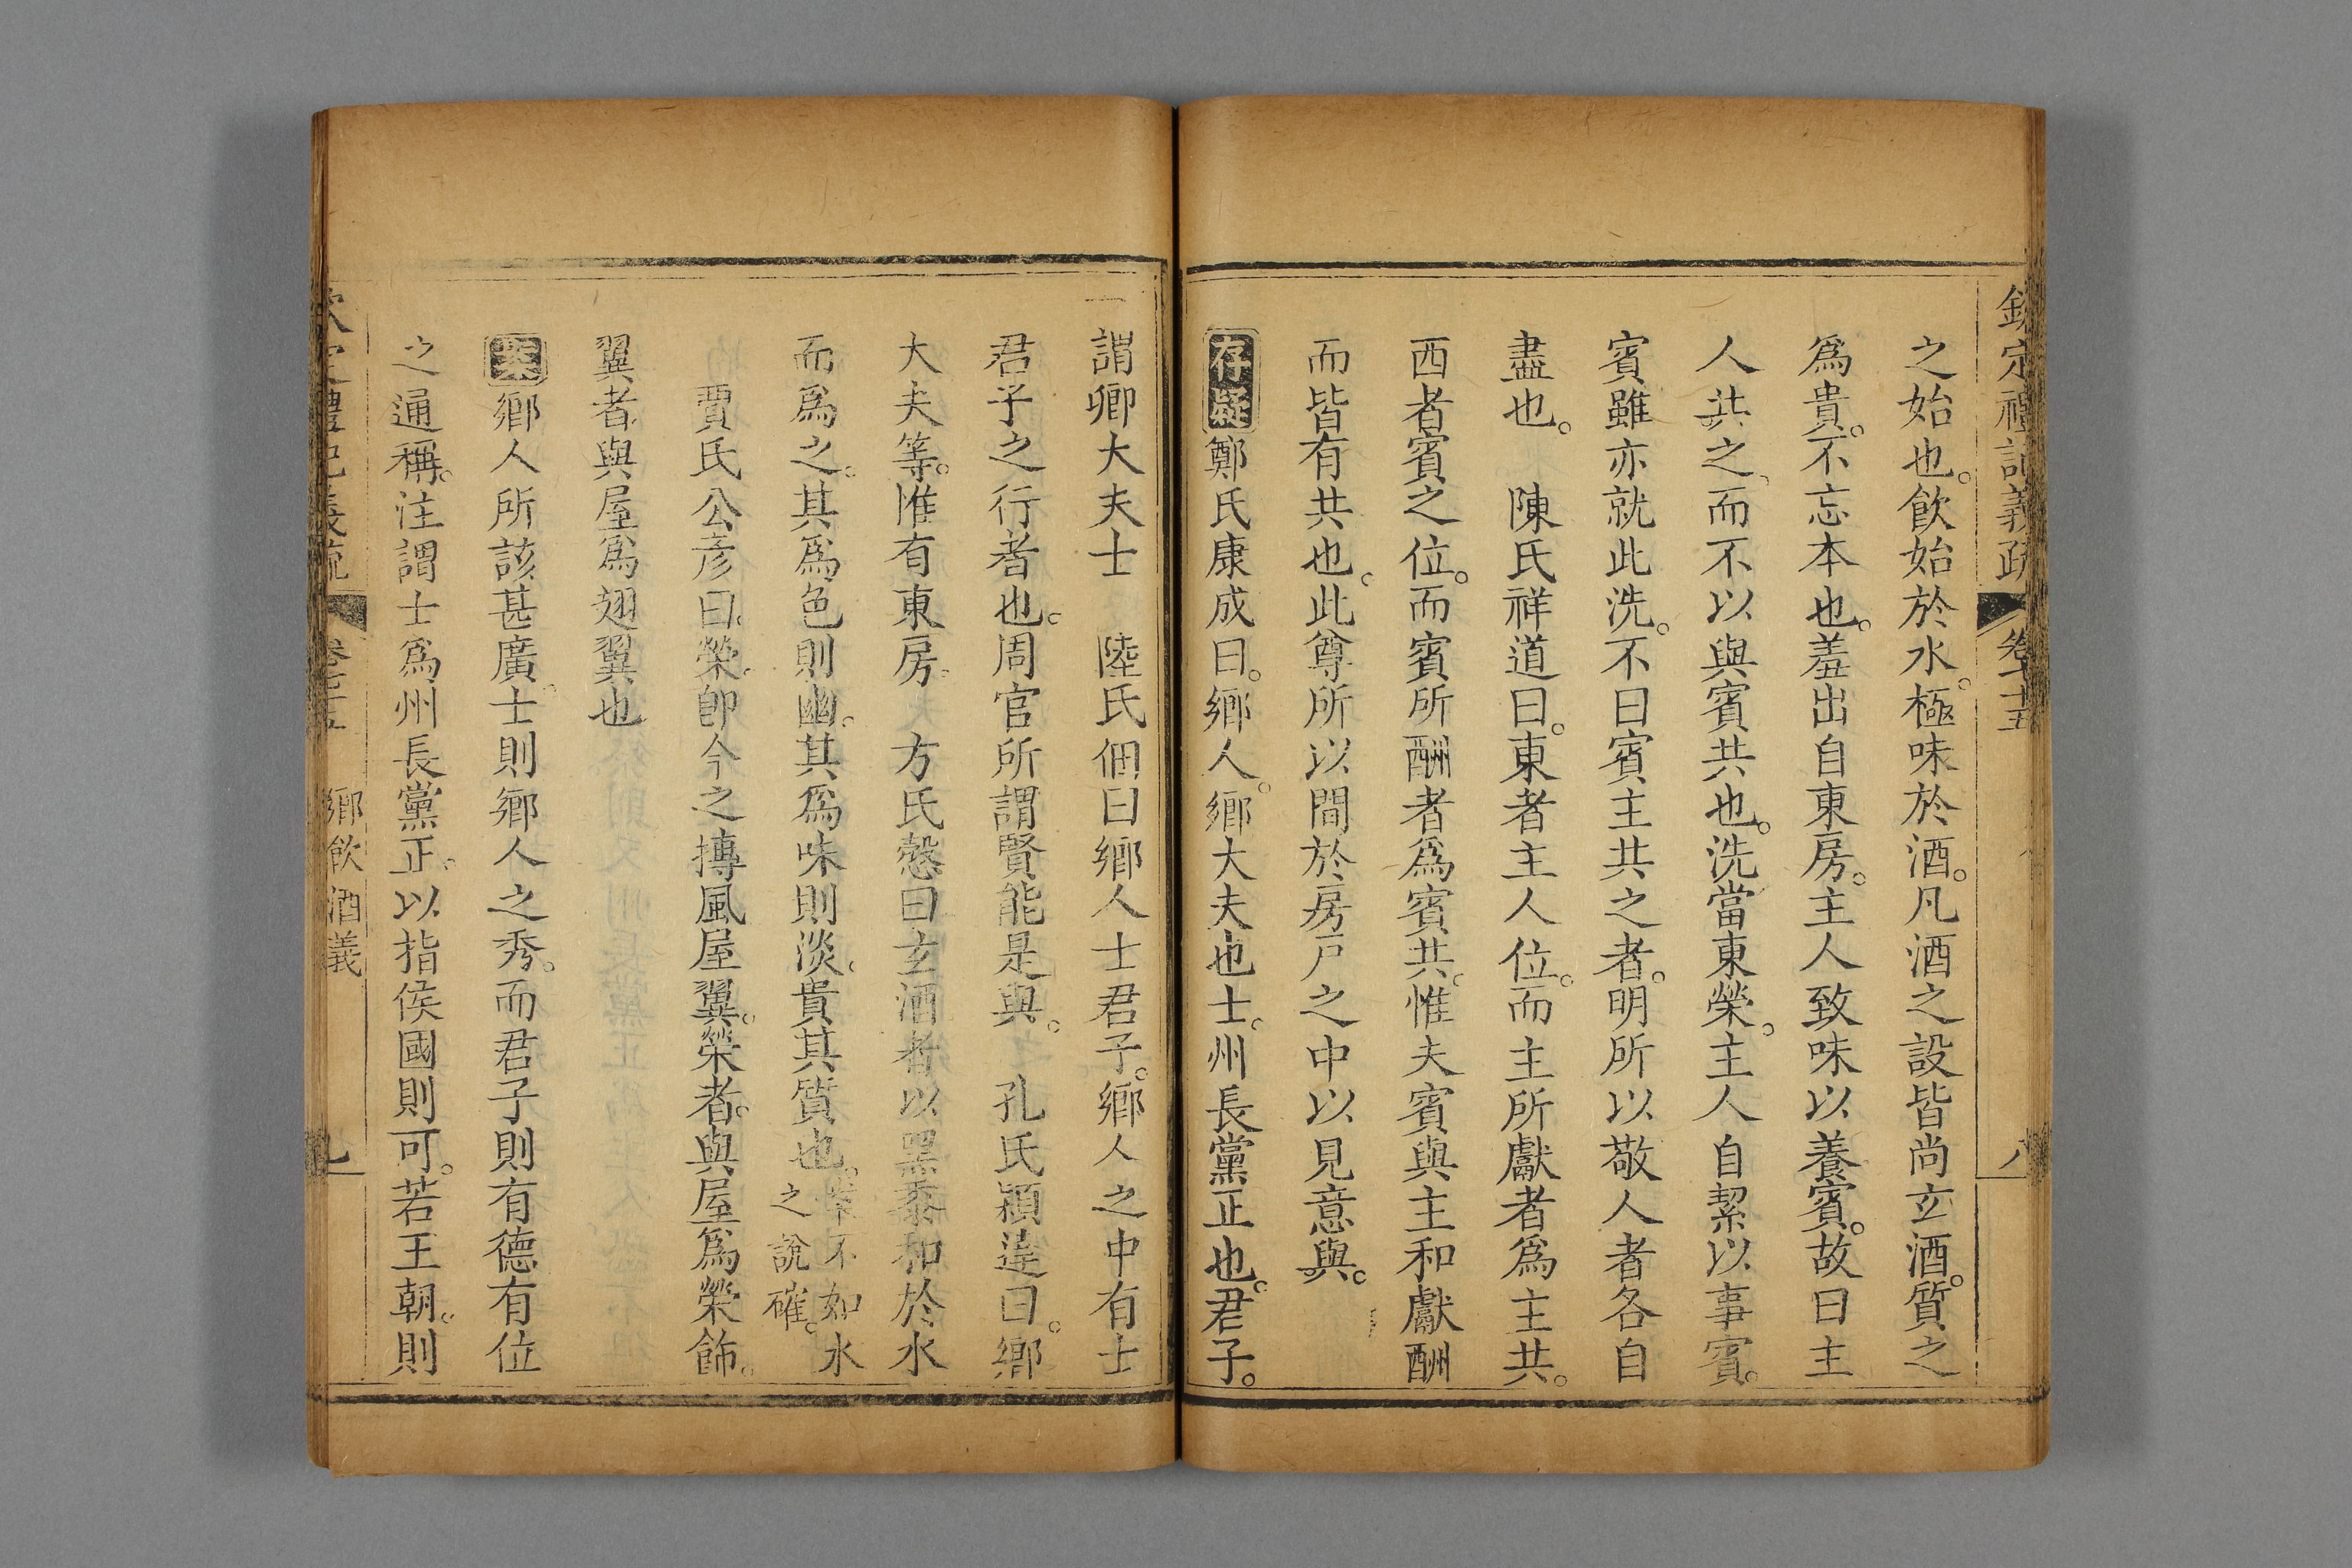 欽定禮記義疏 卷七十五 八
之始也。飲始於水。極味於酒。凡酒之設皆尚玄酒。質之
爲貴。不忘本也。羞出自東房。主人致味以養賓。故曰主
人共之、而不以與賓共也。洗當東榮。主人自絜以事賓。
賓雖亦就此洗。不曰賓主共之者。明所以敬人者各自
盡也。 陳氏祥道曰。東者主人位。而主所獻者爲主共。
西者賓之位。而賓所酬者爲賓共。惟夫賓與主和獻酬
而皆有共也。此尊所以間於房戶之中以見意與。
存疑 鄭氏康成曰。鄉人。鄉大夫也士。州長黨正也。君子。
謂卿大夫士 陸氏佃曰鄉人士君子。鄉人之中有士
君子之行者也。周官所謂賢能是與。 孔氏穎達曰。鄉
大夫等。惟有東房。 方氏慤曰玄酒者以黑黍和於水
而爲之。其爲色則幽。其爲味則淡。貴其質也。案不如水之說確。
賈氏公彥曰。榮。卽今之摶風屋翼。榮者。與屋爲榮飾。
翼者。與屋爲翅翼也
案 鄉人所該甚廣。士則鄉人之秀。而君子則有德有位
之通稱。注謂士爲州長黨正。以指侯國則可。若王朝。則
欽定禮記義疏 卷七十五 鄉飲酒義